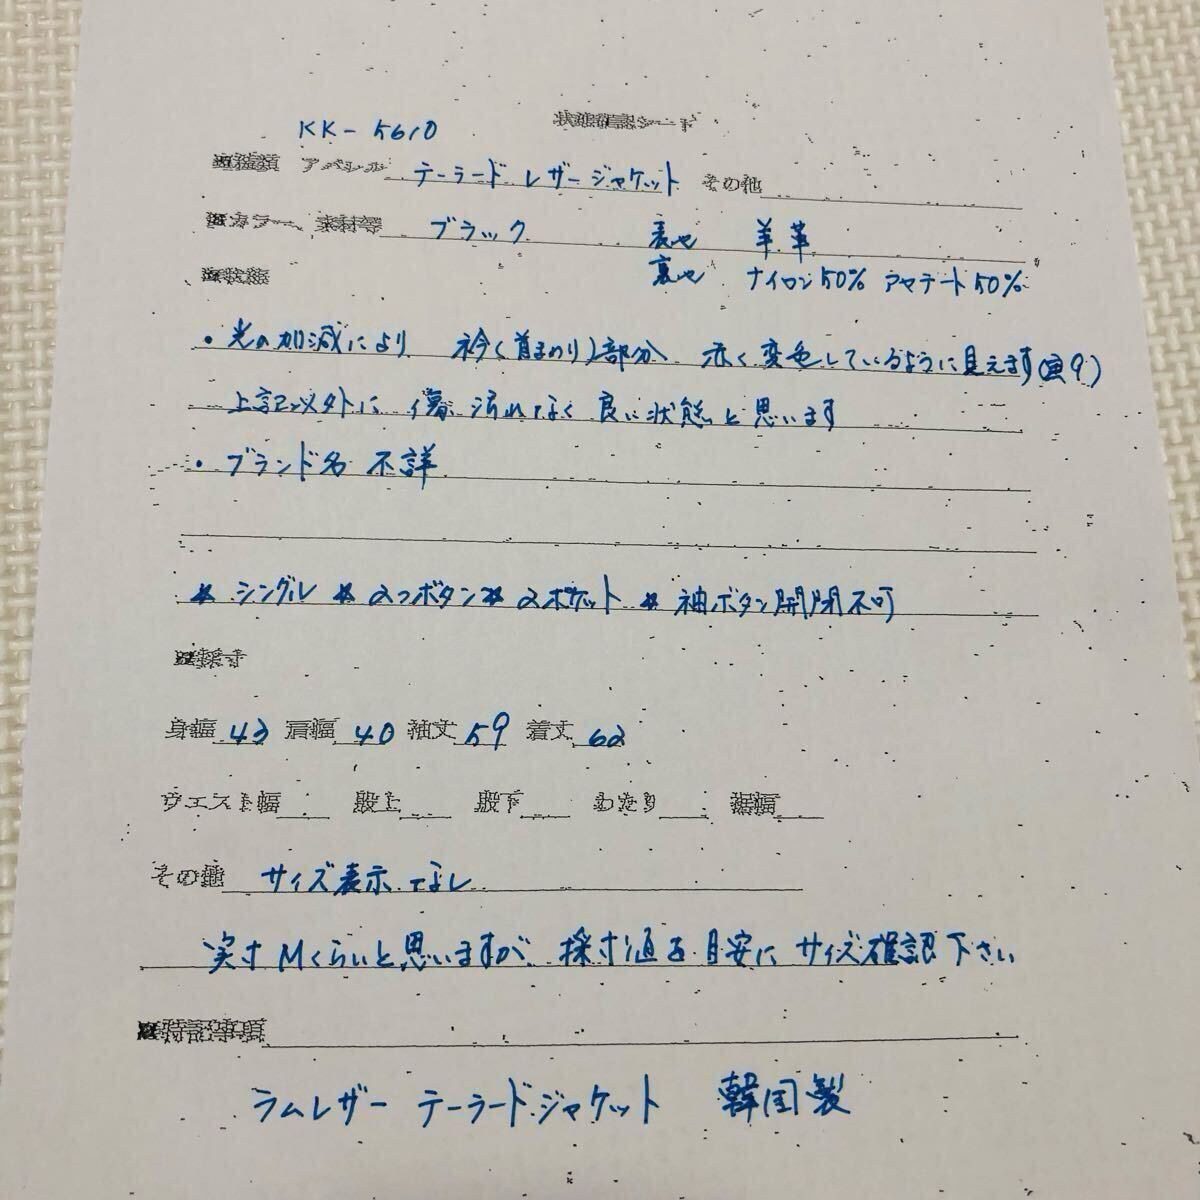 状態確認シート
KK-5610
■種類 アパレル テーラードレザージャケット その他
■カラー、素材等 ブラック 表地 羊革
裏地 ナイロン50% アセテート50%
■状態
・光の加減により 衿(首まわり)部分 赤く変色しているように見えます(画9)
上記以外に傷 汚れなく良い状態と思います
・ブランド名 不詳
* シングル * 2つボタン * 2ポケット * 袖ボタン開閉不可
■採寸
身幅 43 肩幅 40 袖丈 59 着丈 62
ウエスト幅 股上 股下 わたり 裾幅
その他 サイズ表示なし
実寸Mくらいと思いますが 採寸値を目安に サイズ確認下さい
■特記事項
ラムレザー テーラードジャケット 韓国製